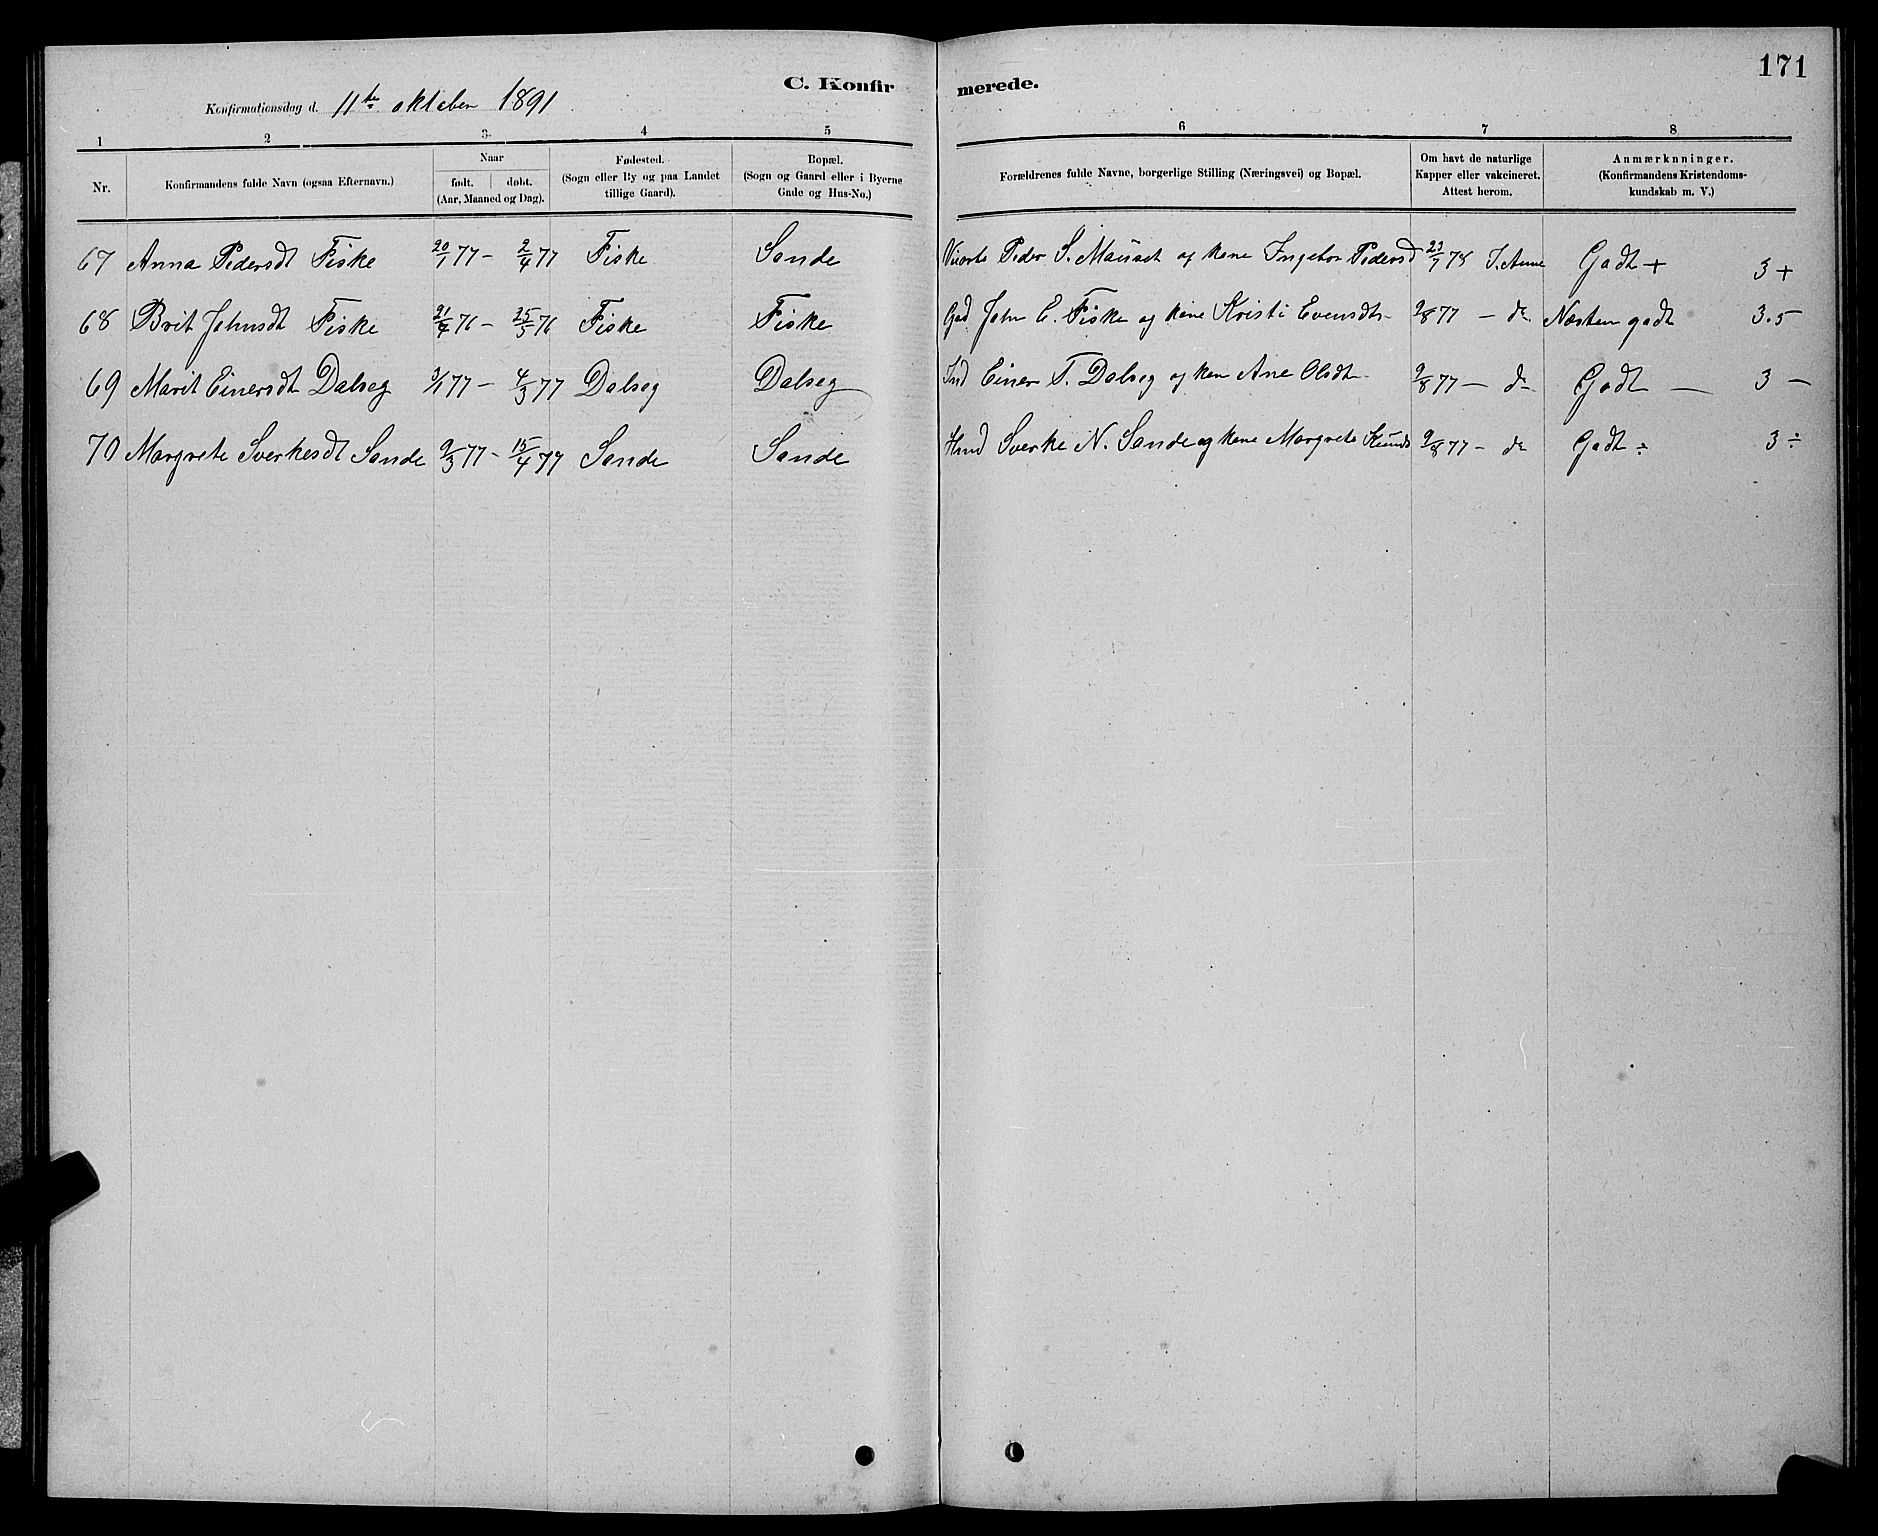 171
C. Konfirmerede.
Konfirmationsdag d. 11te oktober 1891
1 2 3 4 5 6 7 8
Nr. Konfirmandens fulde Navn (ogsaa Efternavn.) Naar født. døbt. (Aar, Maaned og Dag). Fødested. (Sogn eller By og paa Landet tillige Gaard). Bopæl. (Sogn og Gaard eller i Byerne Gade og Hus-No.) Forældrenes fulde Navne, borgerlige Stilling (Næringsvei) og Bopæl. Om havt de naturlige Kapper eller vakcineret. Attest herom. Anmærknninger. (Konfirmandens Kristendomskundskab m. V.)
67 Anna Pedersdt Fiske 20/1 77 - 2/4 77 Fiske Sande Peder S. Mauset og kone Ingebor Pedersd 23/7 78 J. Aune Godt + 3 +
68 Brit Johnsdt Fiske 21/4 76 - 25/5 76 Fiske Fiske Gad John E. Fiske og kone Kristi Evensdtr 9/8 77 - do Næsten godt 3.5
69 Marit Einersdt Dalseg 3/1 77 - 4/3 77 Dalseg Dalseg Ind Einer T. Dalseg og kon Ane Olsdt 9/8 77 - do Godt — 3 —
70 Margrete Sverkesdt Sande 9/3 77 - 15/4 77 Sande Sande Hmd Sverke N. Sande og kone Margrete Knuds 9/8 77 - do Godt ÷ 3 ÷